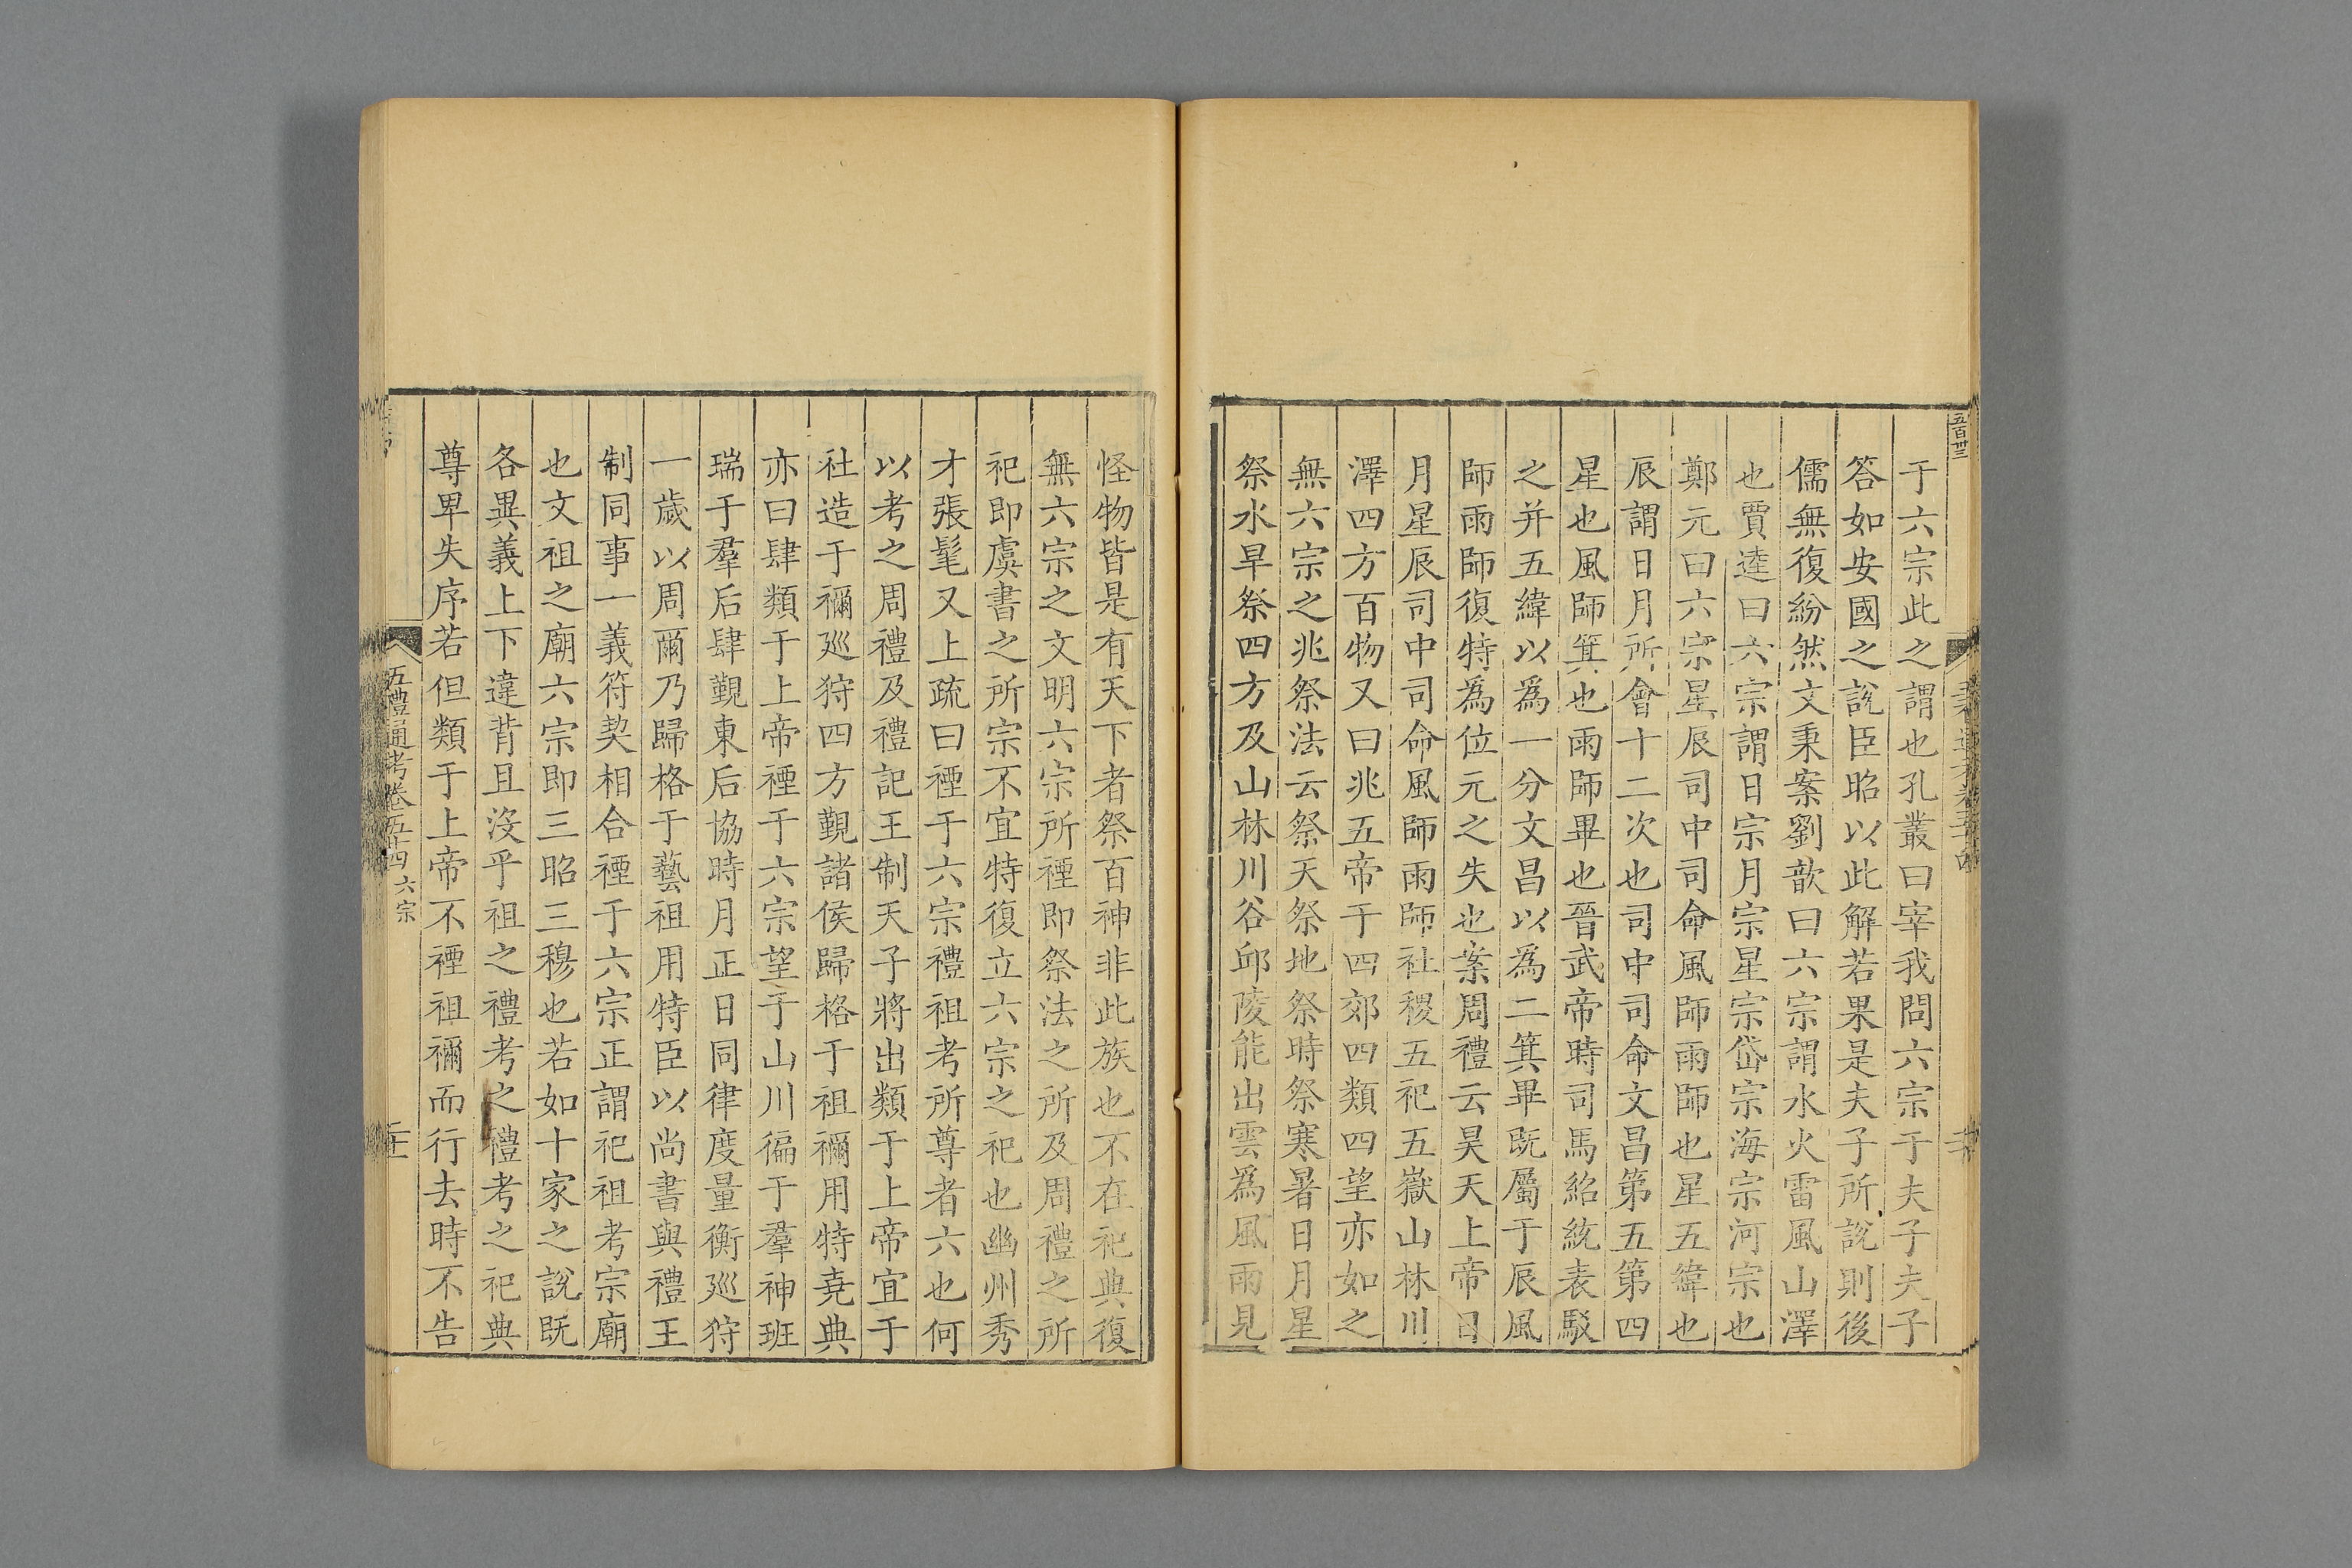 五百卅三
于六宗此之謂也孔叢曰宰我問六宗于夫子夫子
答如安國之說臣昭以此解若果是夫子所說則後
儒無復紛然文秉案劉歆曰六宗謂水火雷風山澤
也賈逵曰六宗謂日宗月宗星宗岱宗海宗河宗也
鄭元曰六宗星辰司中司命風師雨師也星五緯也
辰謂日月所會十二次也司中司命文昌第五第四
星也風師箕也雨師畢也晉武帝時司馬紹統表駁
之并五緯以為一分文昌以為二箕畢既屬于辰風
師雨師復特為位元之失也案周禮云昊天上帝日
月星辰司中司命風師雨師社稷五祀五嶽山林川
澤四方百物又曰兆五帝于四郊四類四望亦如之
無六宗之兆祭法云祭天祭地祭時祭寒暑日月星
祭水旱祭四方及山林川谷邱陵能出雲為風雨見
怪物皆是有天下者祭百神非此族也不在祀典復
無六宗之文明六宗所禋即祭法之所及周禮之所
祀即虞書之所宗不宜特復立六宗之祀也幽州秀
才張髦又上疏曰禋于六宗禮祖考所尊者六也何
以考之周禮及禮記王制天子將出類于上帝宜于
社造于禰巡狩四方覲諸侯歸格于祖禰用特堯典
亦曰肆類于上帝禋于六宗望于山川徧于羣神班
瑞于羣后肆覲東后協時月正日同律度量衡巡狩
一歲以周爾乃歸格于藝祖用特臣以尚書與禮王
制同事一義符契相合禋于六宗正謂祀祖考宗廟
也文祖之廟六宗即三昭三穆也若如十家之說既
各異義上下違背且沒乎祖之禮考之禮考之祀典
尊卑失序若但類于上帝不禋祖禰而行去時不告
五禮通考卷五十四 六宗